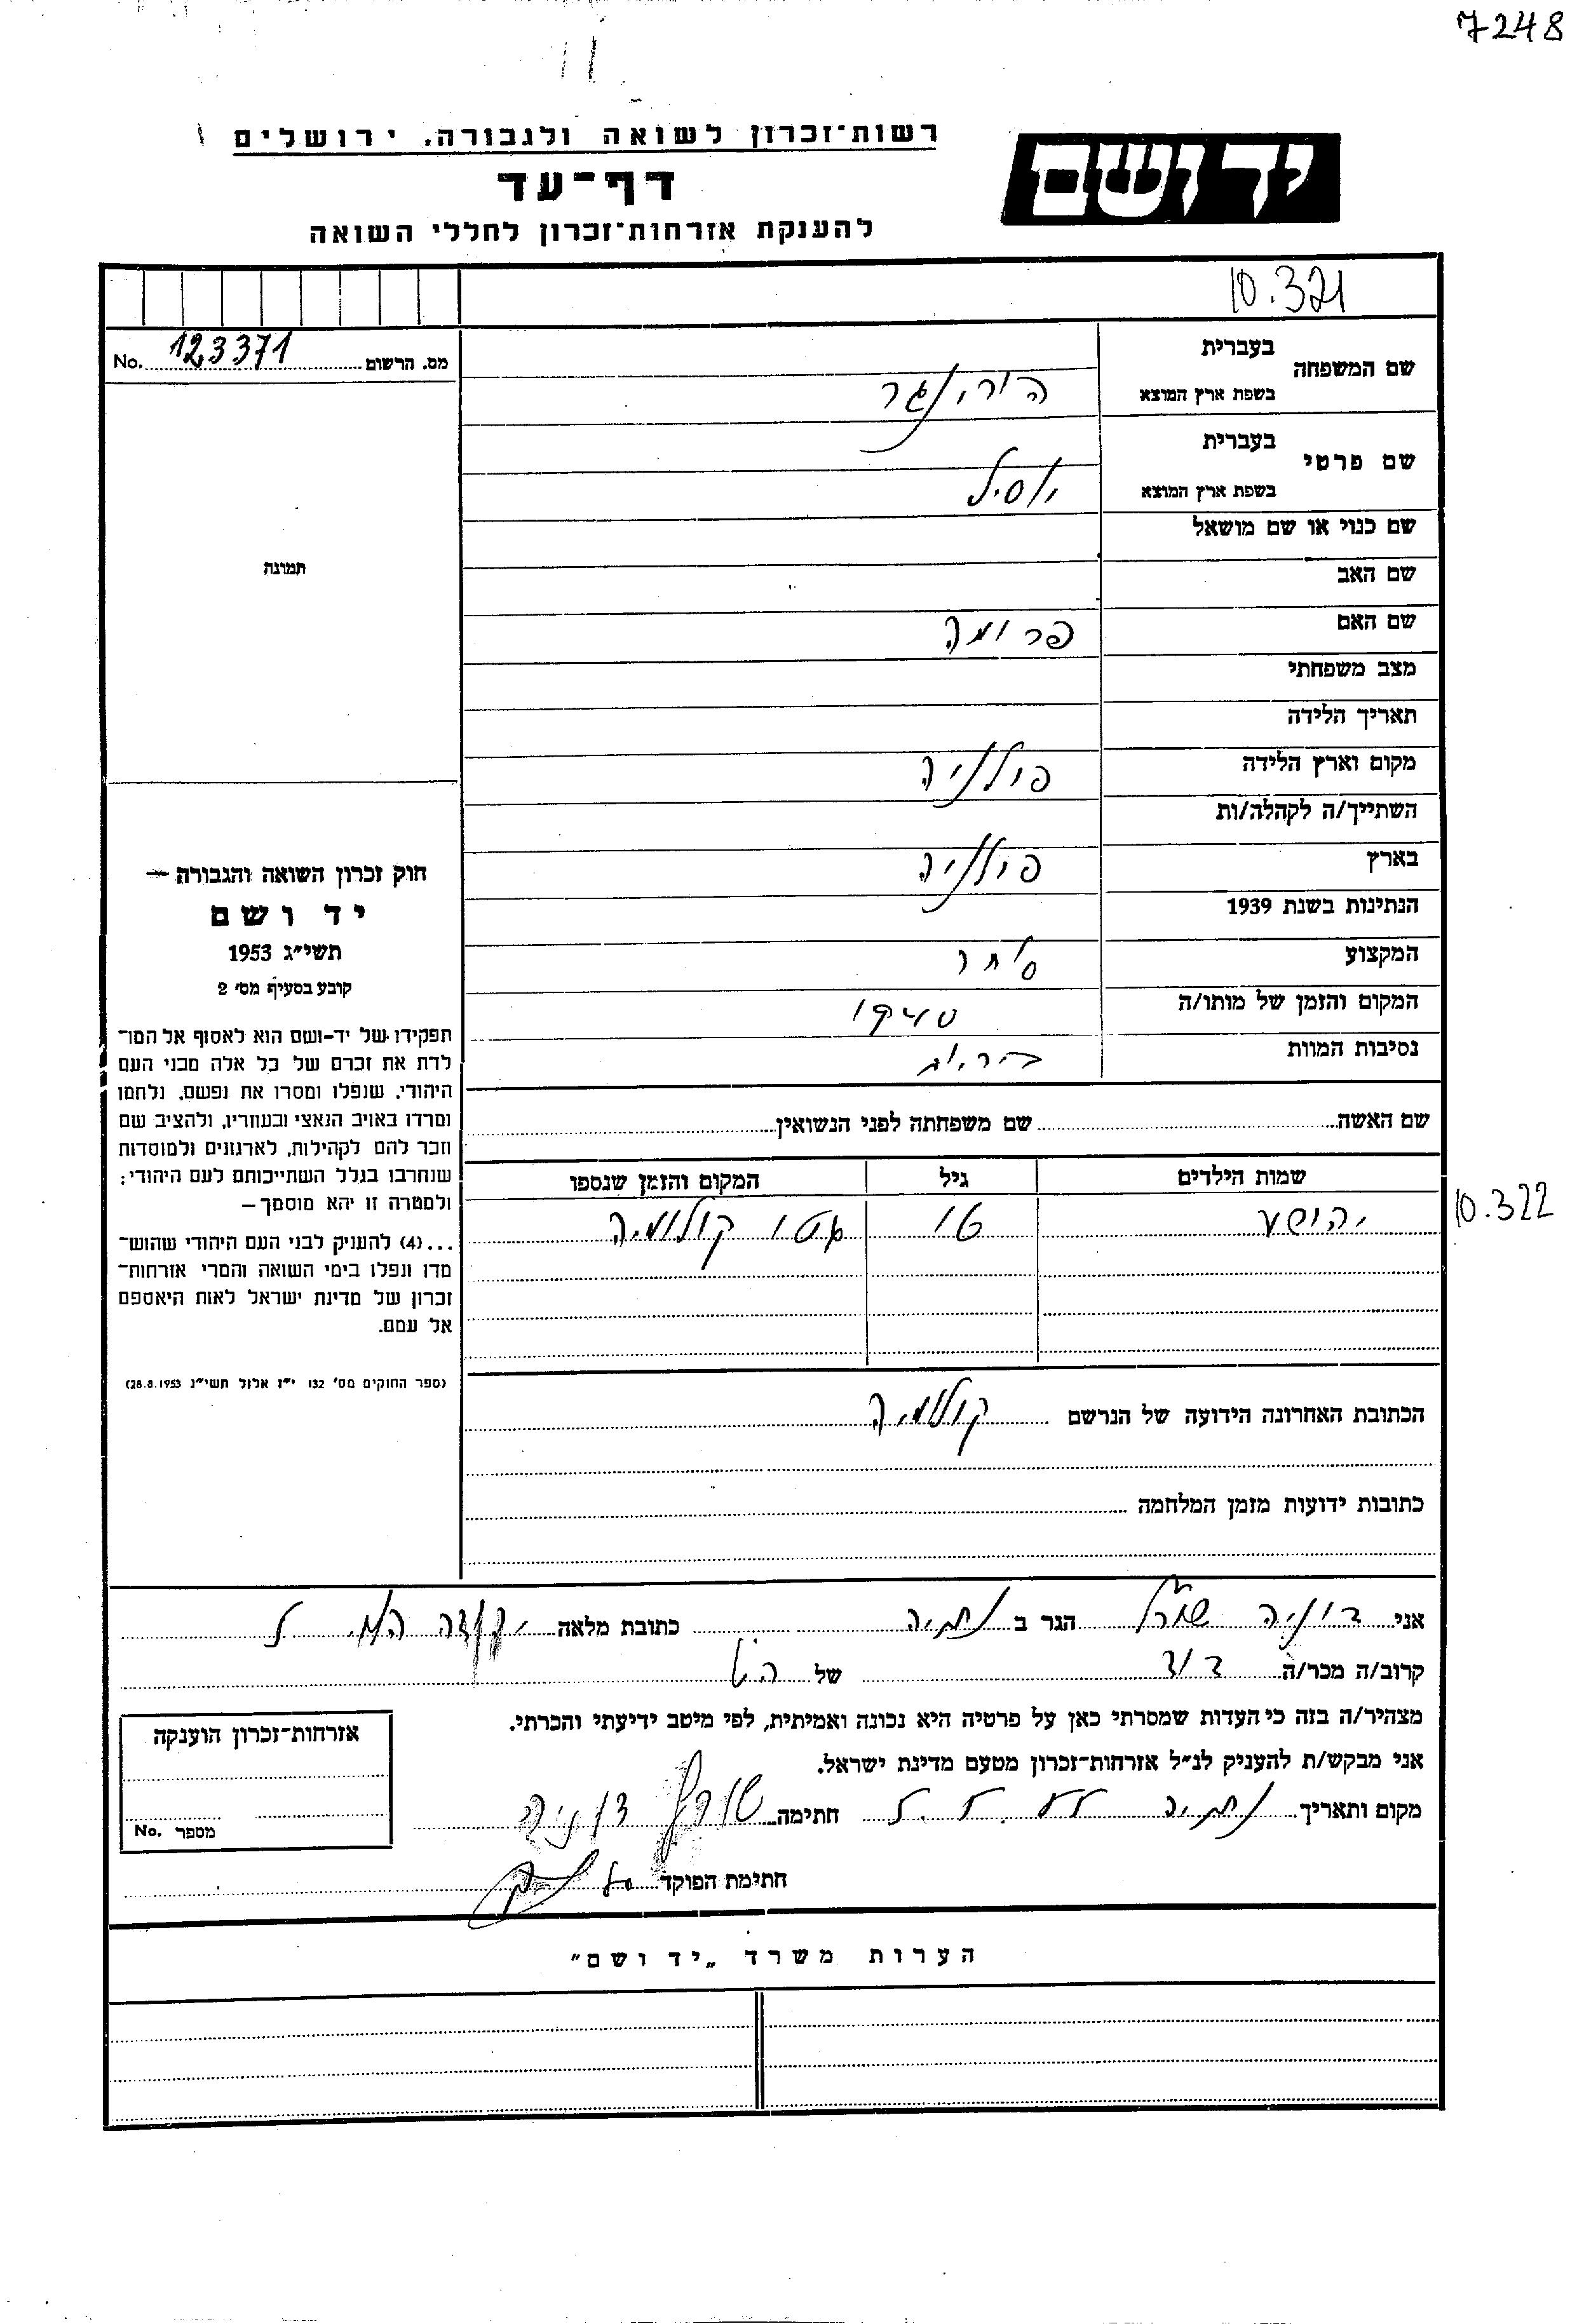 7248
רשות־זכרון לשואה ולגבורה, ירושלים
דף־עד
להענקת אזרחות־זכרון לחללי השואה
יד ושם
10.321
מס. הרשום 123371 No.
שם המשפחה
בעברית
בשפת ארץ המוצא
הורונגר
שם פרטי
בעברית
בשפת ארץ המוצא
יוסיל
שם כנוי או שם מושאל
תמונה
שם האב
שם האם פרומה
מצב משפחתי
תאריך הלידה
מקום וארץ הלידה פולניה
השתייך/ה לקהלה/ות
בארץ פולניה
הנתינות בשנת 1939
המקצוע סוחר
המקום והזמן של מותו/ה
נסיבות המוות
חוק זכרון השואה והגבורה —
יד ושם
תשי״ג 1953
קובע בסעיף מס׳ 2
תפקידו של יד-ושם הוא לאסוף אל המו־
לדת את זכרם של כל אלה מבני העם
היהודי, שנפלו ומסרו את נפשם, נלחמו
ומרדו באויב הנאצי ובעוזריו, ולהציב שם
וזכר להם לקהילות, לארגונים ולמוסדות
שנחרבו בגלל השתייכותם לעם היהודי;
ולמטרה זו יהא מוסמך —
...(4) להעניק לבני העם היהודי שהוש־
מדו ונפלו בימי השואה והמרי אזרחות־
זכרון של מדינת ישראל לאות היאספם
אל עמם.
(ספר החוקים מס׳ 132 י״ז אלול תשי״ג 28.8.1953)
שם האשה שם משפחתה לפני הנשואין
שמות הילדים גיל המקום והזמן שנספו
יהושע 16 גטו קולומיה
10.322
הכתובת האחרונה הידועה של הנרשם קולומיה
כתובות ידועות מזמן המלחמה
אני דוניה שורץ הגר ב נתניה כתובת מלאה
קרוב/ה מכר/ה דוד של
מצהיר/ה בזה כי העדות שמסרתי כאן על פרטיה היא נכונה ואמיתית, לפי מיטב ידיעתי והכרתי.
אני מבקש/ת להעניק לנ״ל אזרחות־זכרון מטעם מדינת ישראל.
מקום ותאריך נתניה חתימה שורץ דוניה
חתימת הפוקד
אזרחות־זכרון הוענקה
מספר No.
הערות משרד „יד ושם״